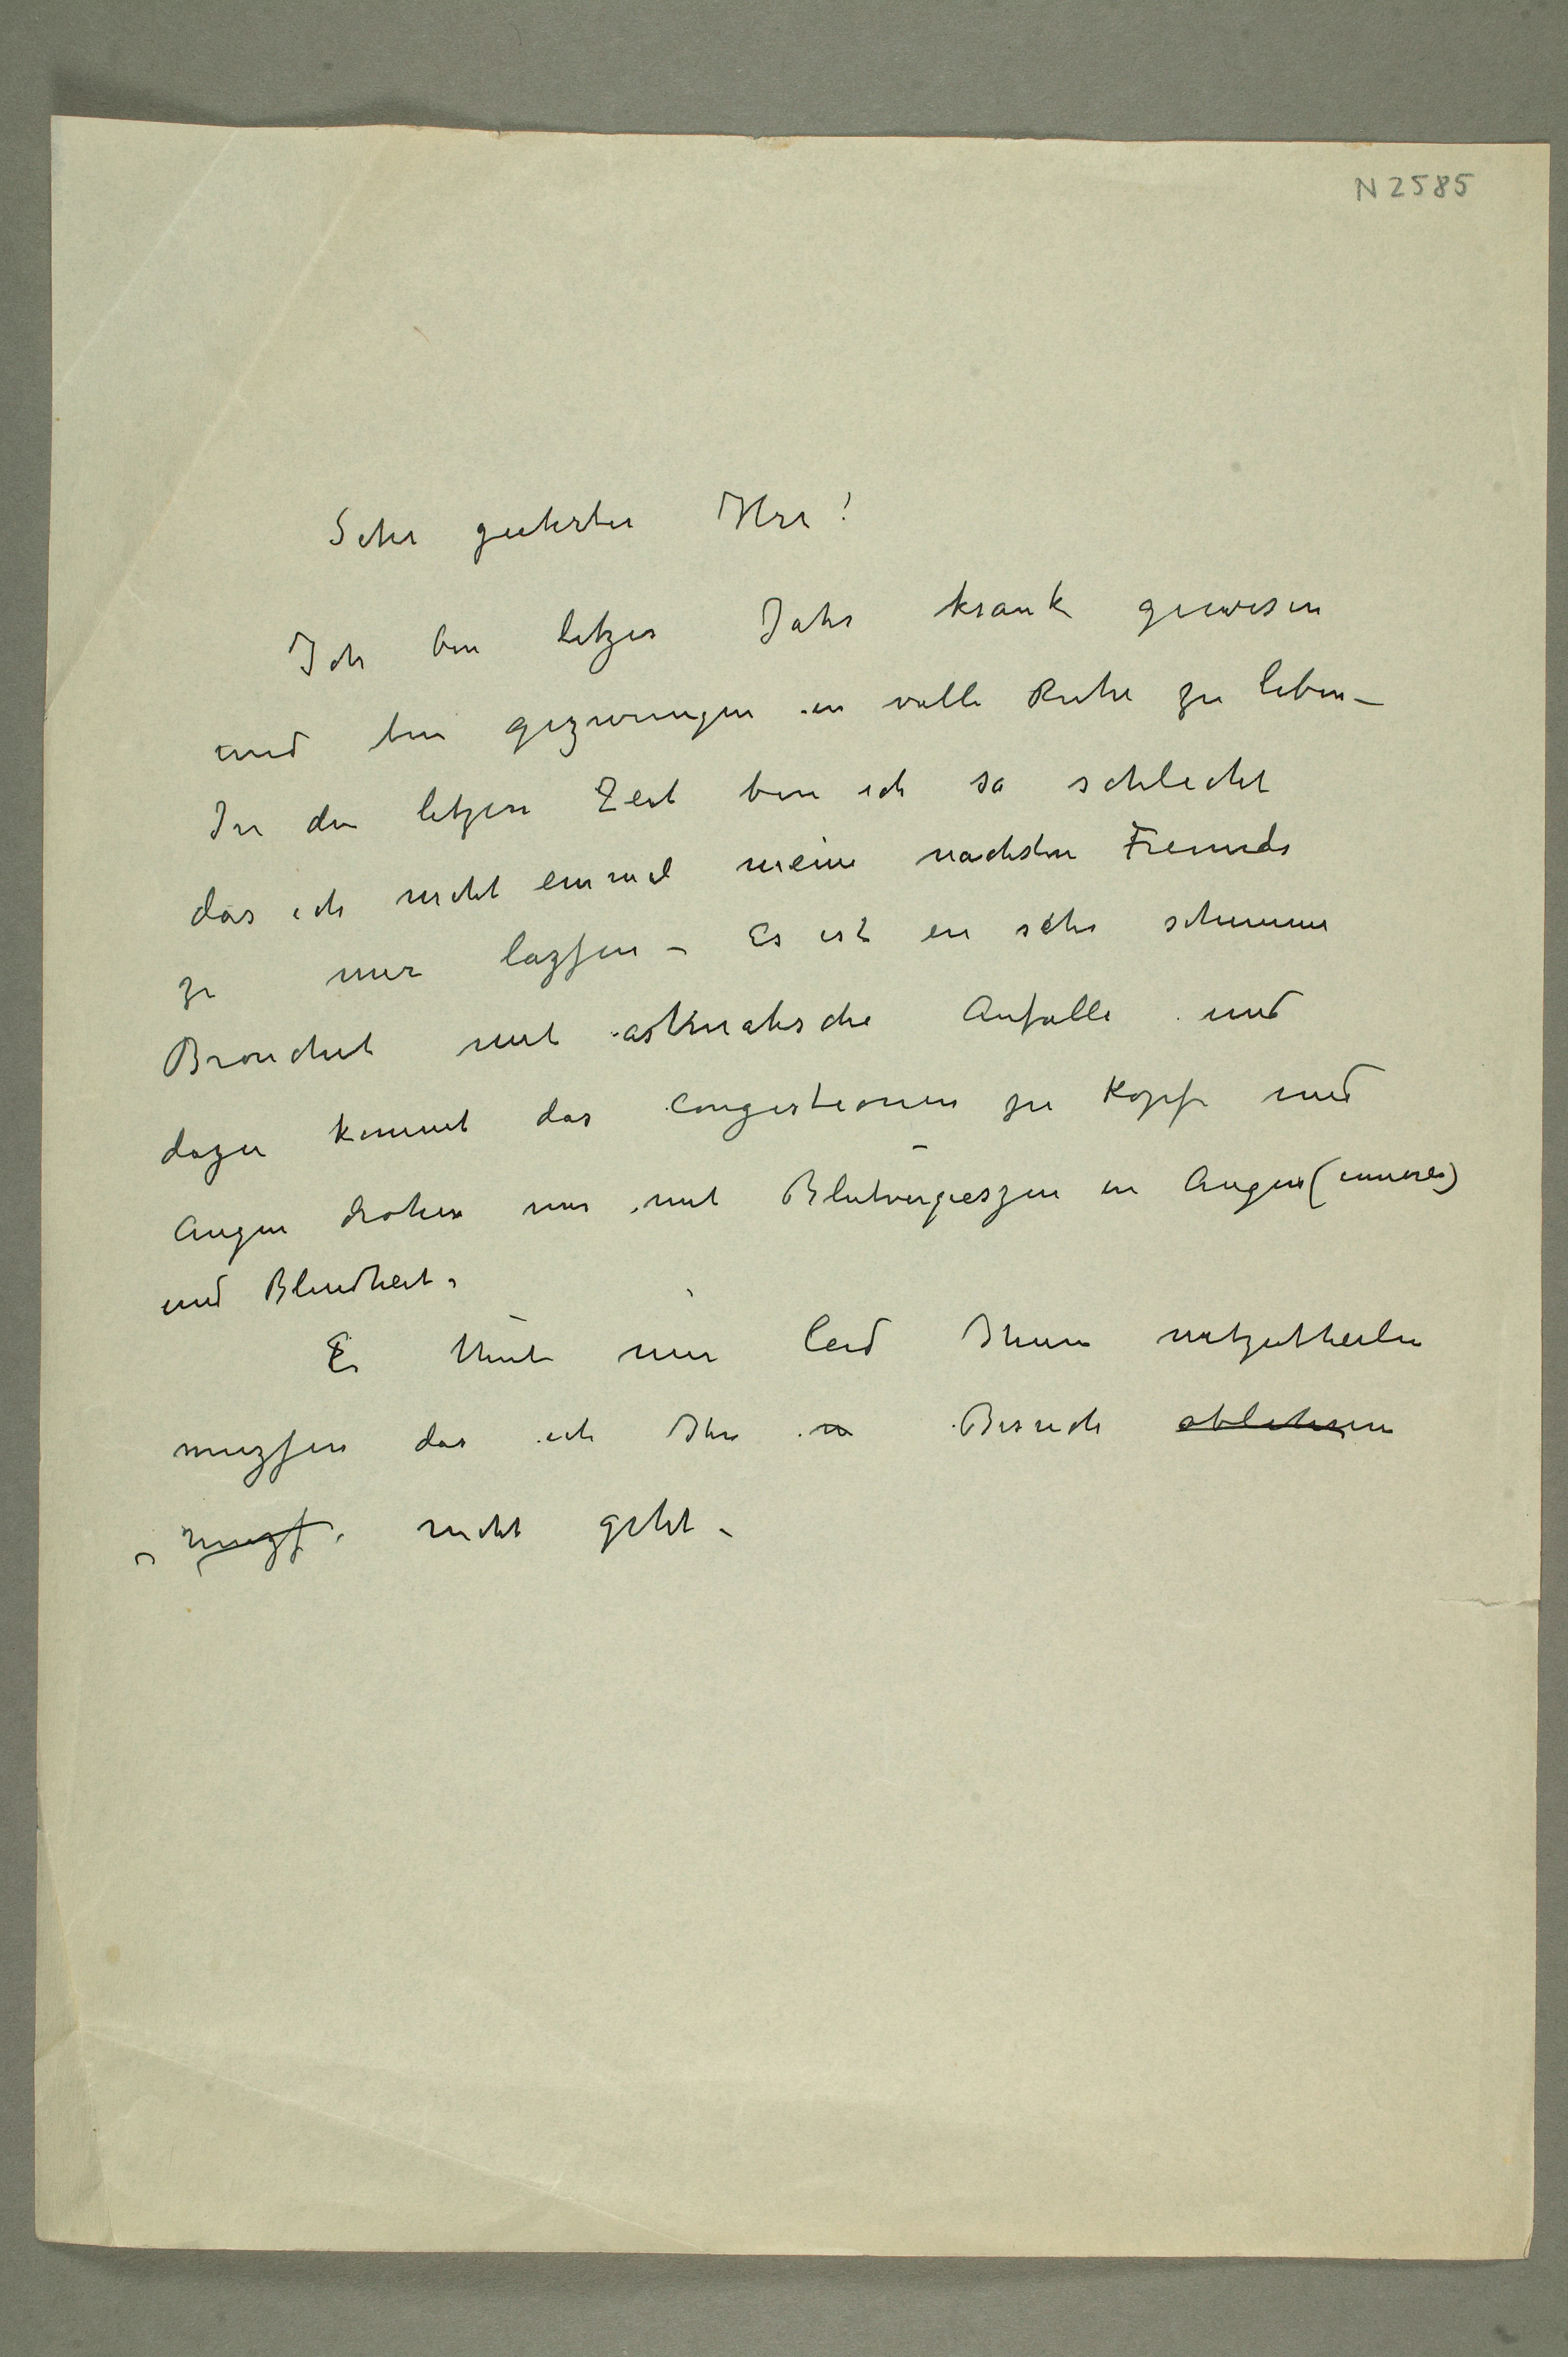 N 2585
Sehr geehrter Herr!
Ich bin letzes Jahr krank gewesen
und bin gezwungen in volle Ruhe zu leben –
In den letzen Zeit bin ich so schlecht
das ich nicht einmal meine nachsten Freunde
zu mir lazfen – Es ist ein sehr schimmer
Bronchit mit astmatische Anfalle und
dazu kommt das Congestionen zu Kopf und
Augen drohen mir mit Blutvergieszen in Augen (inneres)
und Blindheit.
Es thut mir leid Ihnen mitzutheilen
muzfen das ich Ihr Besuch ablehnen
muzf. nicht geht –